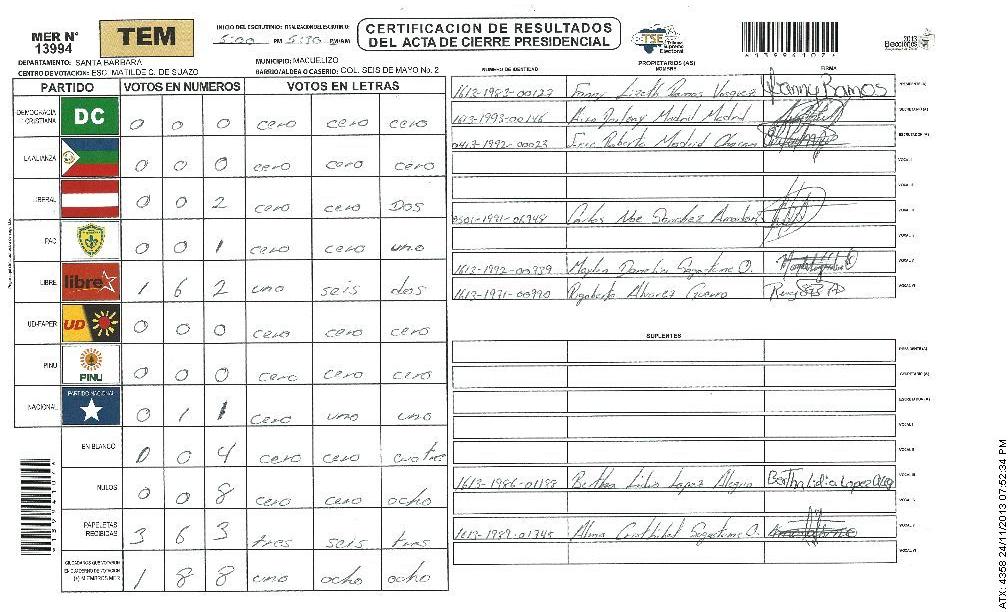 MER Nº 13994
TEM
INICIO DEL ESCRUTINIO: FINALIZACION DEL ESCRUTINIO:
5:00 PM 5:30 PM/AM
CERTIFICACION DE RESULTADOS
DEL ACTA DE CIERRE PRESIDENCIAL
TSE
Tribunal Supremo Electoral
2013
DEPARTAMENTO: SANTA BARBARA
MUNICIPIO: MACUELIZO
CENTRO DE VOTACION: ESC. MATILDE C. DE SUAZO
BARRIO/ALDEA O CASERIO: COL. SEIS DE MAYO No. 2
PARTIDO VOTOS EN NUMEROS VOTOS EN LETRAS
DEMOCRACIA CRISTIANA DC 0 0 0 cero cero cero
LA ALIANZA 0 0 0 cero cero cero
LIBERAL 0 0 2 cero cero Dos
PAC 0 0 1 cero cero uno
LIBRE libre 1 6 2 uno seis dos
UD-FAPER UD 0 0 0 cero cero cero
PINU PINU 0 0 0 cero cero cero
NACIONAL PARTIDO NACIONAL 0 1 1 cero uno uno
EN BLANCO 0 0 4 cero cero cuatro
NULOS 0 0 8 cero cero ocho
PAPELETAS RECIBIDAS 3 6 3 tres seis tres
CIUDADANOS QUE VOTARON EN CUADERNO DE VOTACION (+) MIEMBROS MER 1 8 8 uno ocho ocho
PROPIETARIOS (AS)
NUMERO DE IDENTIDAD NOMBRE FIRMA
1613-1983-00123 Fanny Lizeth Ramos Vasquez Fanny Ramos PRESIDENTE(A)
1613-1993-00146 Madrid Madrid SECRETARIO(A)
0413-1992-00023 Roberto Madrid ESCRUTADOR(A)
VOCAL I
VOCAL II
0501-1991-06948 Carlos Noe Sanchez VOCAL III
VOCAL IV
1613-1992-00339 VOCAL V
1613-1971-00990 Rigoberto Alvarez Guerro VOCAL VI
SUPLENTES
PRESIDENTE(A)
SECRETARIO(A)
ESCRUTADOR(A)
VOCAL I
VOCAL II
1613-1986-01193 Bertha Lidia Lopez Bertha Lidia Lopez VOCAL III
VOCAL IV
1613-1989-01345 Alma VOCAL V
VOCAL VI
ATX: 4358 24/11/2013 07:52:34 PM